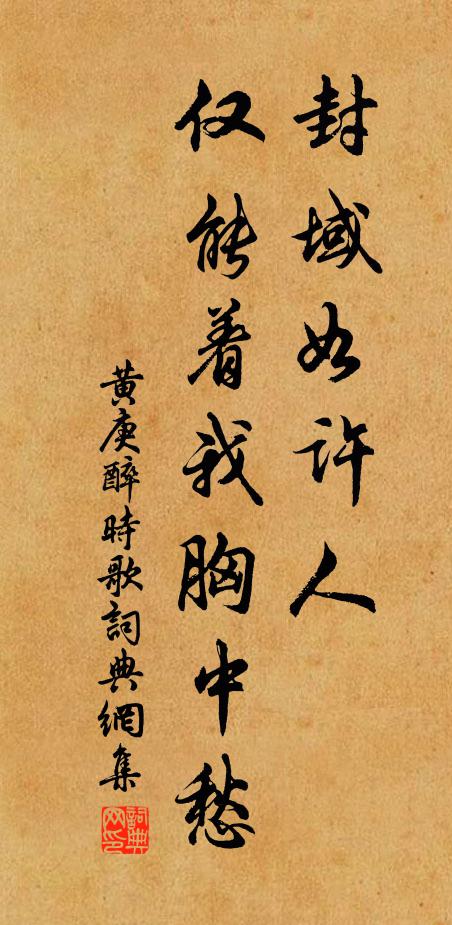 封域如许人
仅能着我胸中愁
黄庚醉時歌詞典網集
詞典网印